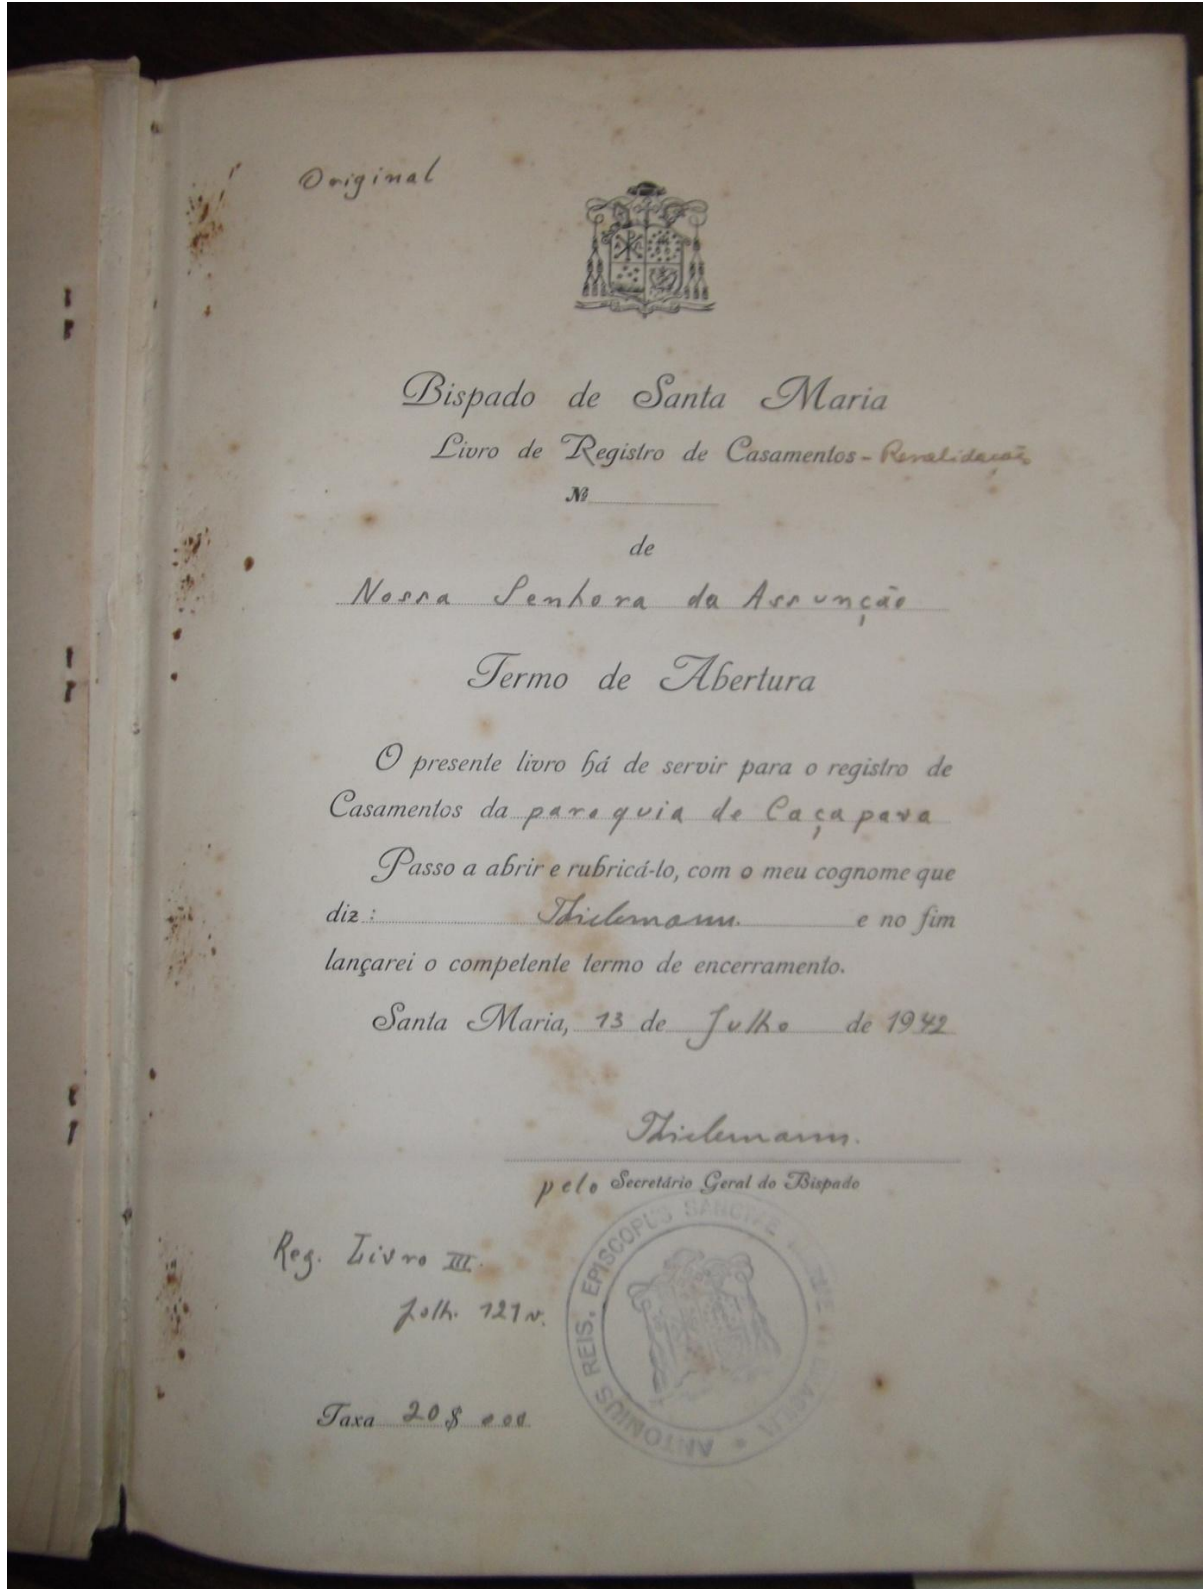 Original
Bispado de Santa Maria
Livro de Registro de Casamentos - Revalidação
Nº
de
Nossa Senhora da Assunção
Termo de Abertura
O presente livro há de servir para o registro de
Casamentos da paroquia de Caçapava
Passo a abrir e rubricá-lo, com o meu cognome que
diz: Thielemann. e no fim
lançarei o competente termo de encerramento.
Santa Maria, 13 de Julho de 1942
Thielemann.
pelo Secretário Geral do Bispado
Reg. Livro III.
folh. 121 v.
Taxa 20$000
ANTONIUS REIS. EPISCOPUS SANCTAE